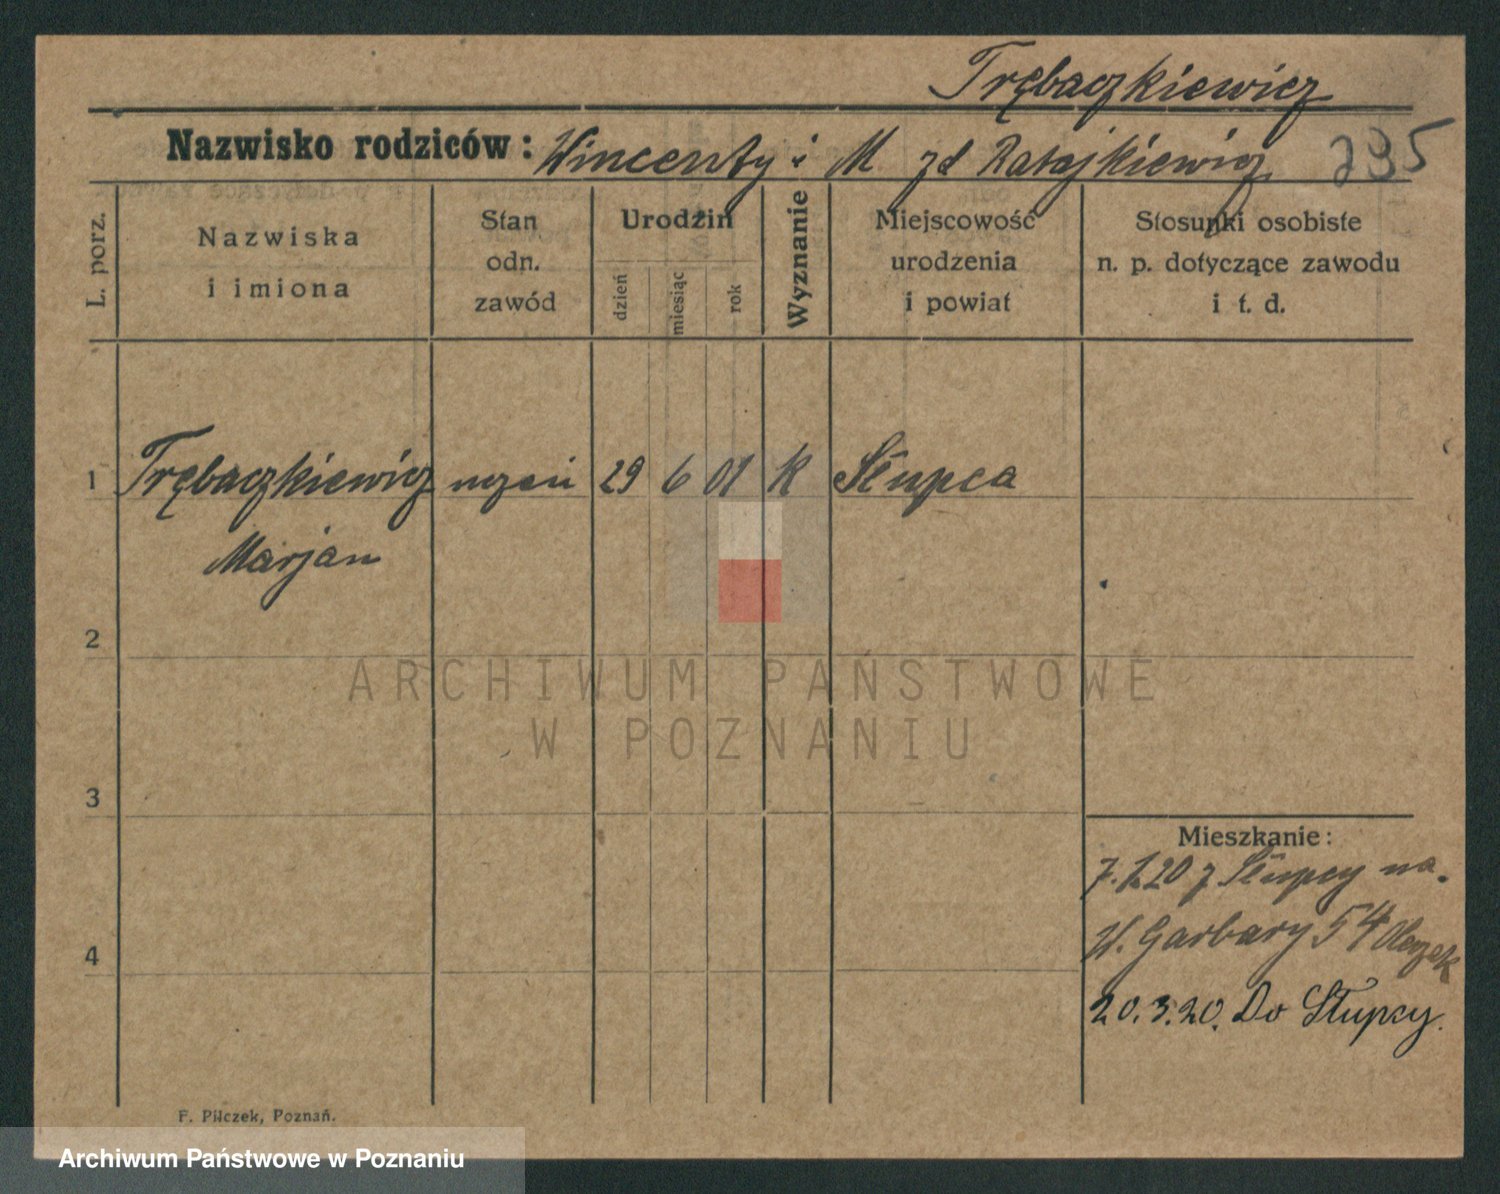 Trębaczkiewicz
Nazwisko rodziców: Wincenty i M zd Ratajkiewicz 295
L. porz.
Nazwiska
i imiona
Stan
odn.
zawód
Urodzin
dzień
miesiąc
rok
Wyznanie
Miejscowość
urodzenia
i powiat
Stosunki osobiste
n. p. dotyczące zawodu
i t. d.
1 Trębaczkiewicz uczeń 29 6 01 k Słupca
Marjan
2
ARCHIWUM PAŃSTWOWE
W POZNANIU
3
Mieszkanie:
7.1.20 z Słupcy na.
W. Garbary 54
4
20.3.20. Do Słupcy.
F. Pilczek, Poznań.
Archiwum Państwowe w Poznaniu